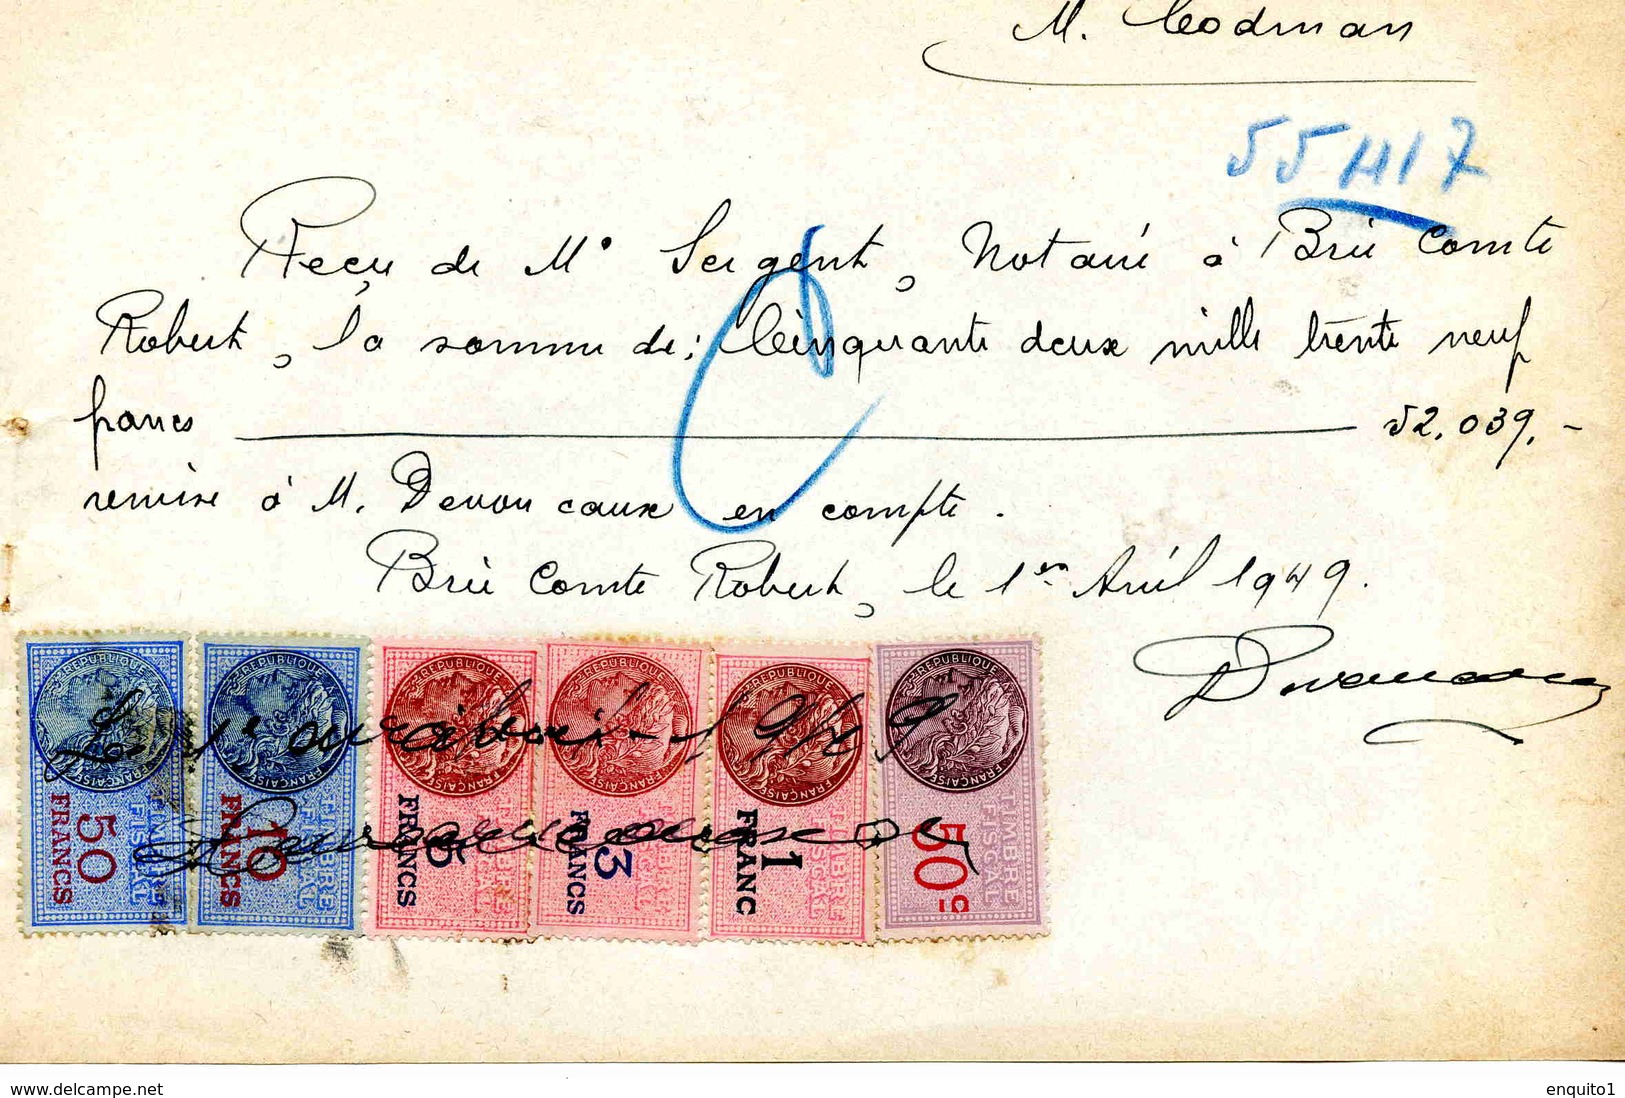 M. Codman
55417
Reçu de Me Sergent, Notaire à Brie Comte
Robert, la somme de: Cinquante deux mille trente neuf
francs 52.039.-
remise à M. Devoucaux en compte.
Brie Comte Robert, le 1er Avril 1949.
RÉPUBLIQUE FRANÇAISE TIMBRE FISCAL 50 FRANCS
RÉPUBLIQUE FRANÇAISE TIMBRE FISCAL 10 FRANCS
RÉPUBLIQUE FRANÇAISE TIMBRE FISCAL 5 FRANCS
RÉPUBLIQUE FRANÇAISE TIMBRE FISCAL 3 FRANCS
RÉPUBLIQUE FRANÇAISE TIMBRE FISCAL 1 FRANC
RÉPUBLIQUE FRANÇAISE TIMBRE FISCAL 50c
Le 1er avril 1949
www.delcampe.net
enquito1